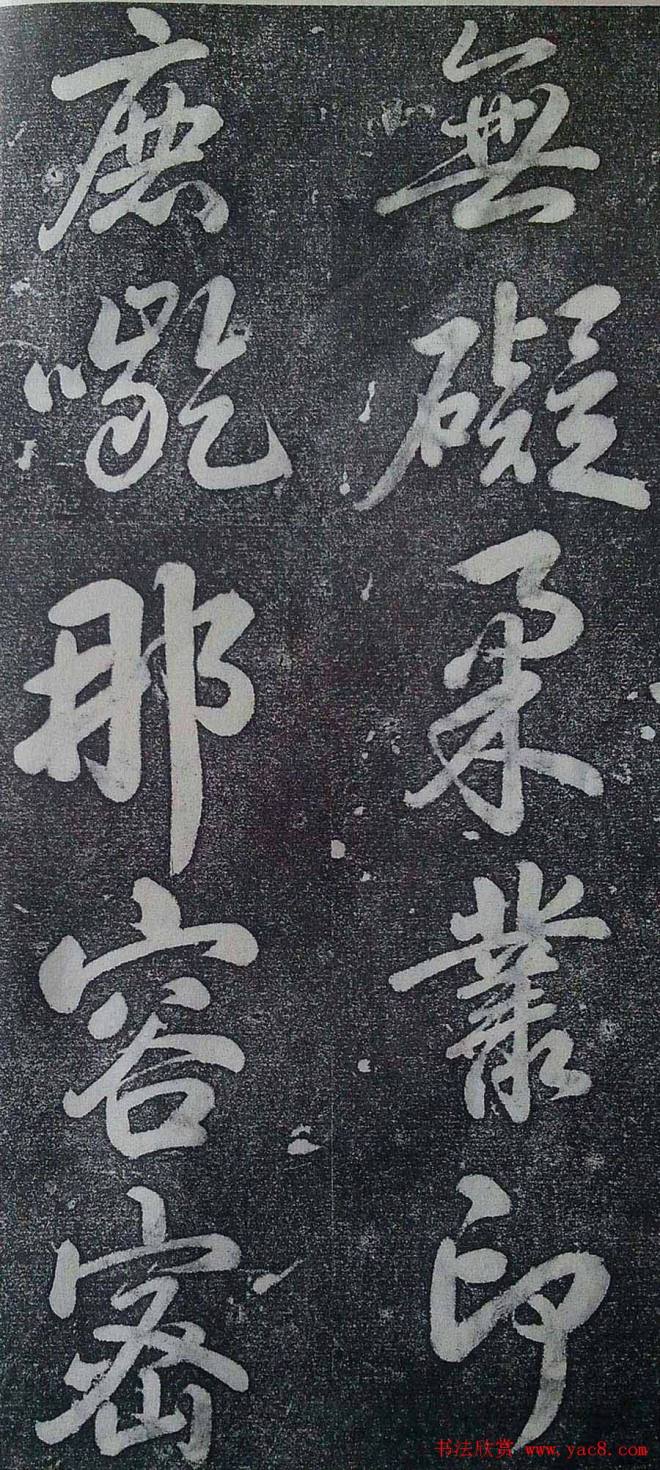 無礙柔叢印
鹿齕那容密
書法欣赏 www.yac8.com